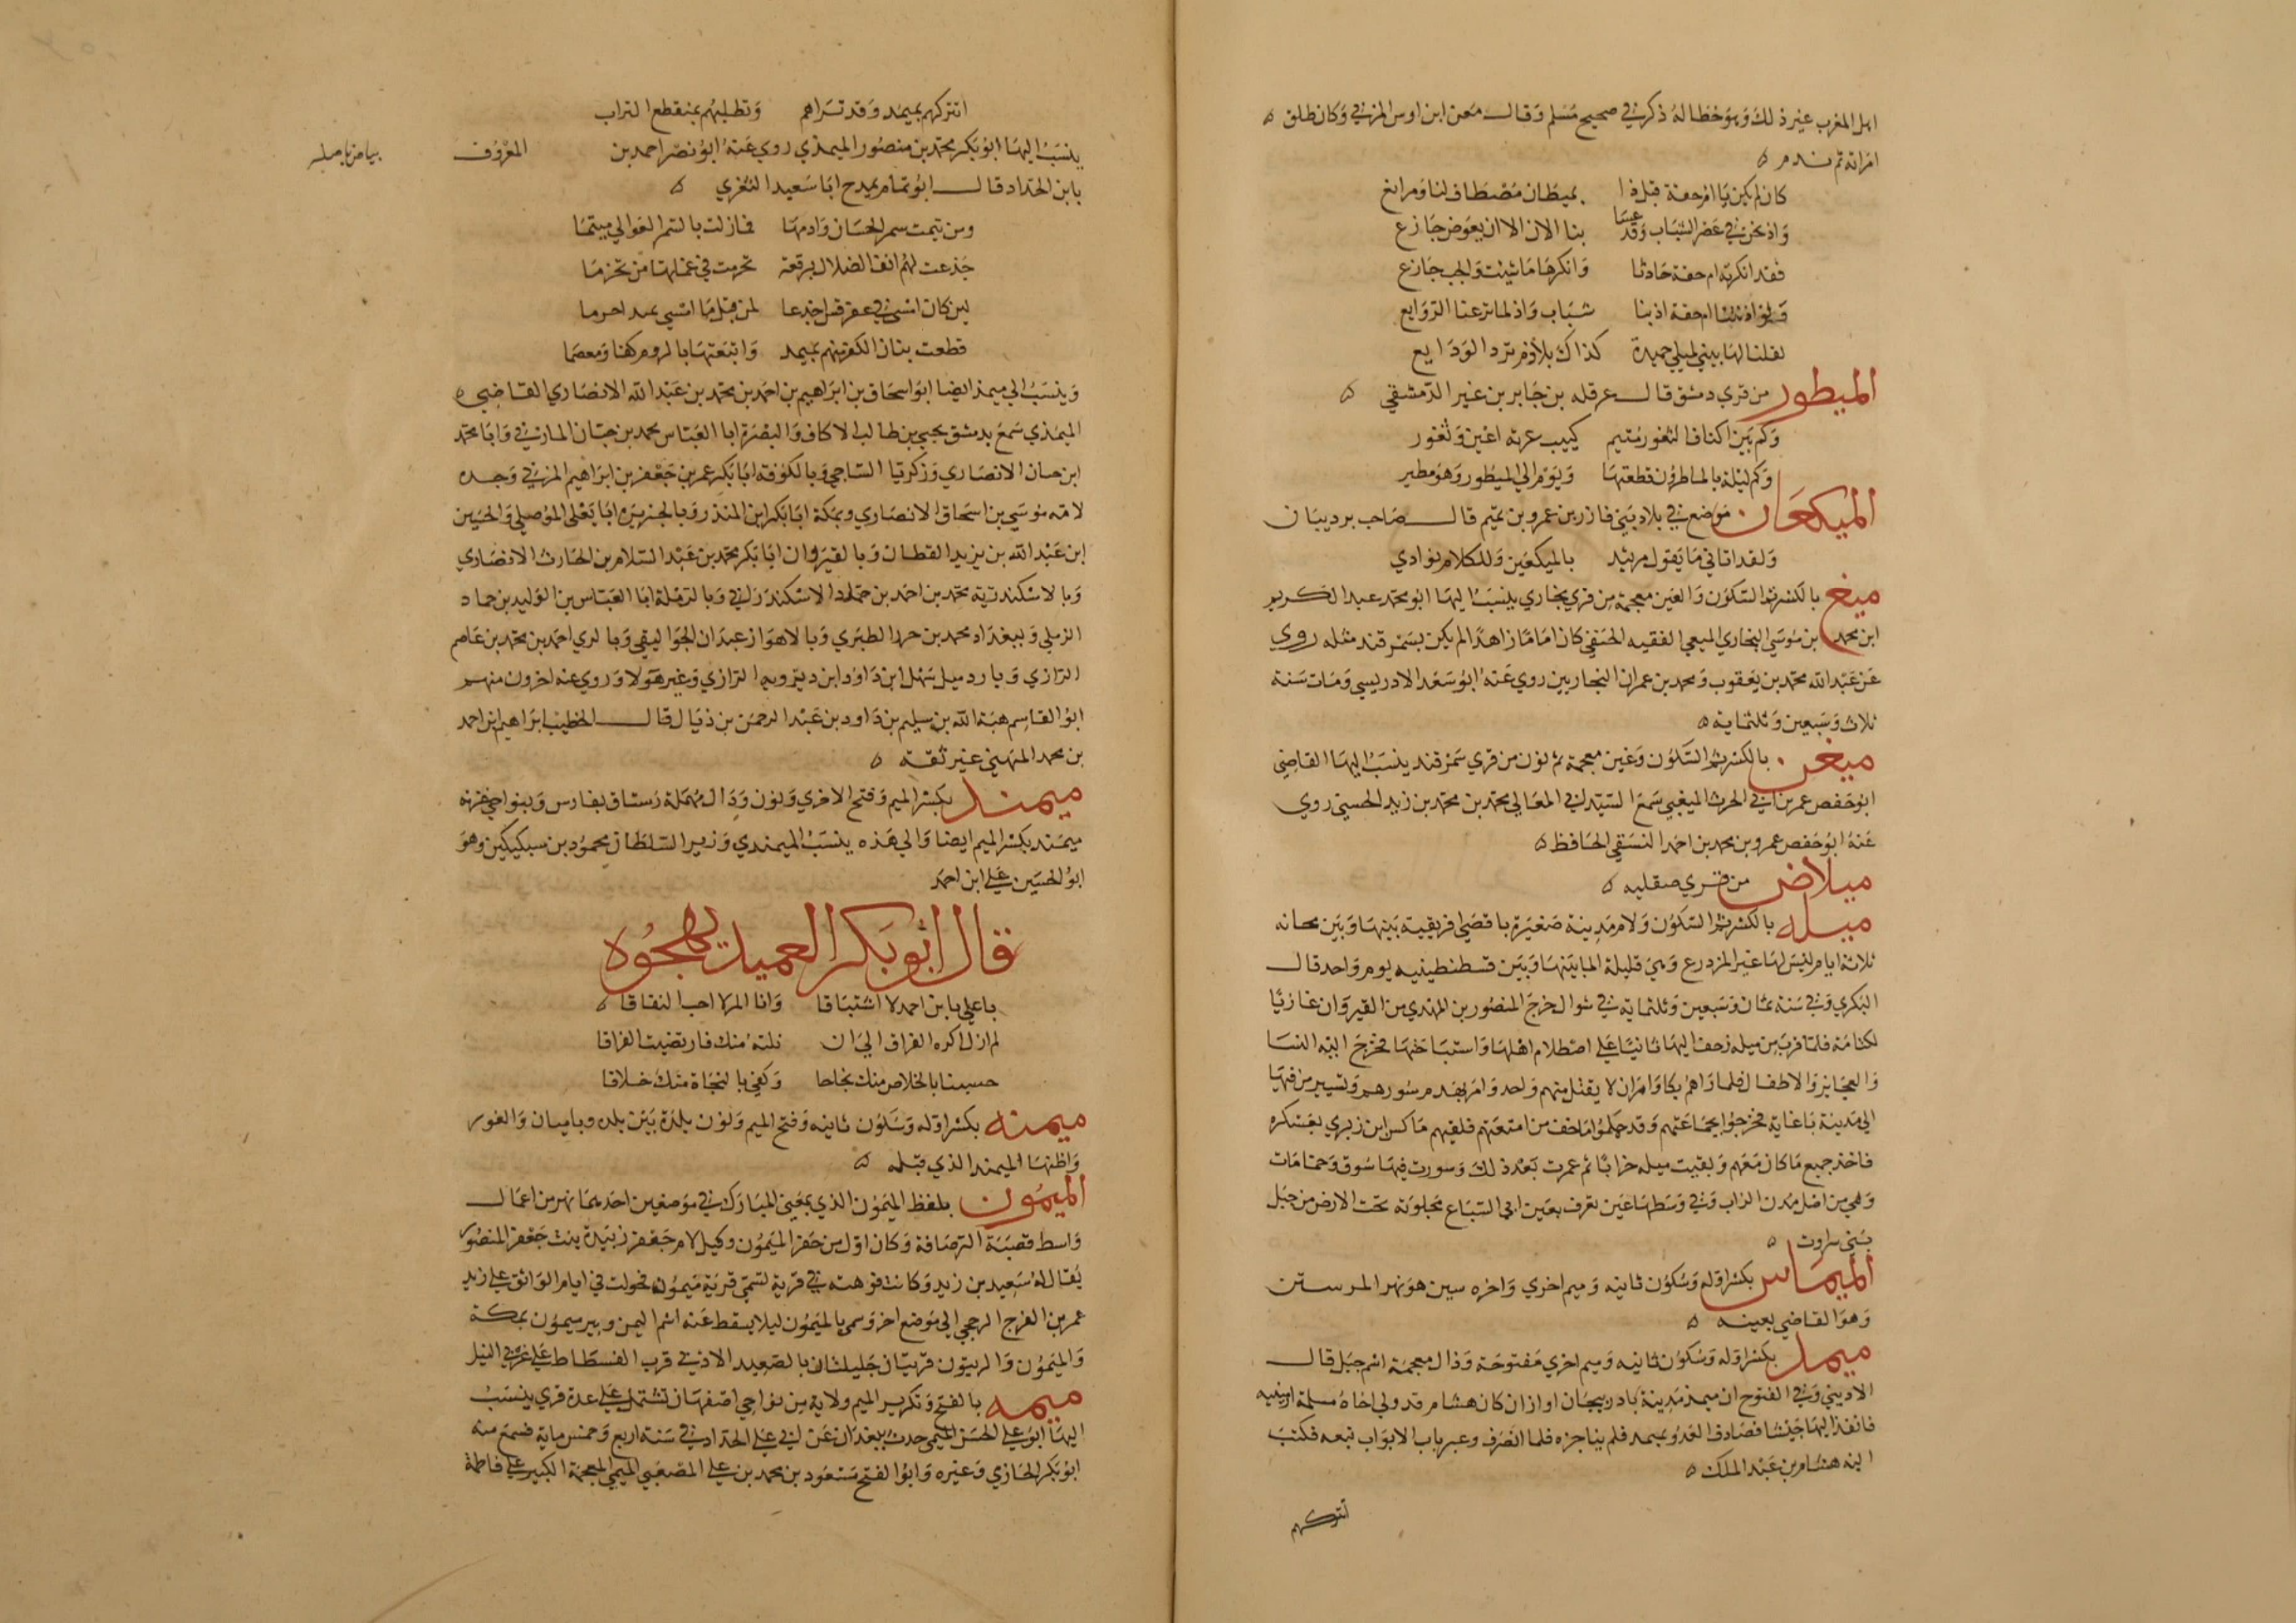 اهل المغرب غير ذلك وهو خطا له ذكر في صحيح مسلم وقال معن ابن اوس المزني وكان طلق
امراته ثم ندم
كان لم يكن يا ام حفة قبل ذا بميطان مصطاف لنا ومرابع
واذ نحن في عصر الشباب وقد عسا بنا الان الا ان يعوض جازع
فقد انكرته ام حفة حادثا وانكرها ما شيت والحب جازع
ولو اذنتنا ام حفة اذ بنا شباب واذ لما ترعنا الروايع
لقلنا لها بيني لميلي حميدة كذاك بلا ذم ترد الودايع
الميطور من قري دمشق قال عرقله بن جابر بن نمير الدمشقي
وكم بين اكناف الثغور متيم كييب غزته اعين وثغور
وكم ليلة بالماطرون قطعتها ويوم الي الميطور وهو مطير
الميكعان موضع في بلاد بني فازر بن عمرو بن تميم قال حاجب بن ديبان
ولقد اتاني ما يقول مريثد بالميكعين وللكلام نوادي
ميغ بالكسر ثم السكون والغين معجمة من قري بخاري ينسب اليها ابو محمد عبد الكريم
ابن محمد بن موسي البخاري الميغي الفقيه الحنفي كان اماما زاهدا لم يكن بسمرقند مثله روي
عن عبد الله محمد بن يعقوب ومحمد بن عمران البخاريين روي عنه ابو سعد الادريسي ومات سنة
ثلاث وسبعين وثلثماية
ميغن بالكسر ثم السكون وغين معجمة ثم نون من قري سمرقند ينسب اليها القاضي
ابو حفص عمر بن ابي الحرث الميغني سمع السيد ابي المعالي محمد بن محمد بن زيد الحسيني روي
عنه ابو حفص عمرو بن محمد بن احمد النسقي الحافظ
ميلاض من قري صقليه
ميله بالكسر ثم السكون ولام مدينة صغيرة باقصي افريقية بينها وبين بجانه
ثلاثة ايام ليس لها غير المزدرع وهي قليلة الما بينها وبين قسطنطينيه يوم واحد قال
البكري وفي سنة ثمان وسبعين وثلثماية في شوال خرج المنصور بن المهدي من القيروان غازيا
لكتامة فلما قرب من ميله زحف اليها ثانيا علي اصطلام اهلها واستباحتها فخرج اليه النسا
والعجايز والاطفال فلما راهم بكا وامر ان لا يقتل منهم واحد وامر بهدم سورهم وتسيير من فيها
الي مدينة باغاية فخرجوا بجماعتهم وقد حملوا ما خف من امتعتهم فلقيهم ماكس ابن زيري بعسكره
فاخذ جميع ما كان معهم وبقيت ميله خرابا ثم عمرت بعد ذلك وسورت فيها سوق وحمامات
وهي من اصل مدن الزاب وفي وسطها عين تعرف بعين ابي السباع مجلوبة تحت الارض من جبل
بني ساروت
الميماس بكسر اوله وسكون ثانيه وميم اخري واخره سين هو نهر الرستن
وهو القاضي بعينه
ميمذ بكسر اوله وسكون ثانيه وميم اخري مفتوحة وذال معجمة اسم جبل قال
الاديبي وفي الفتوح ان ميمذ مدينة باذربيجان او اران كان هشام قد ولي اخاه مسلمة ارمنيه
فانفذ اليها جيشا فصادف العدو بميمد فلم يناجزه فلما انصرف وعبر باب الابواب تبعه فكتب
اليه هشام بن عبد الملك
اتتركهم
اتتركهم بميمد وقد تراهم وتطلبهم بمنقطع التراب
ينسب اليها ابو بكر محمد بن منصور الميمذي روي عنه ابو نصر احمد بن المعروف
بياض بالاصل
بابن الحداد قال ابو تمام يمدح ابا سعيد الثغري
ومن تيمت سمر الحسان وادمها فما زلت بالسمر العوالي ميتما
جذعت لهم انف الضلال برقعة تخرمت في غمايها من تخرما
لين كان امسي في عقرقس اجذعا لمن قبل ما امسي بميمد اخرما
قطعت بنان الكفر منهم بميمد واتبعتها بالروم كفا ومعصما
وينسب الي ميمذ ايضا ابو اسحاق بن ابراهيم بن احمد بن محمد بن عبد الله الانصاري القاضي
الميمذي سمع بدمشق يحيي بن طالب الاكاف وبالبصرة ابا العباس محمد بن حبان المازني وابا محمد
ابن حسان الانصاري وزكريا الساجي وبالكوفة ابا بكر عمر بن جعفر بن ابراهيم المزني وجده
لامه موسي بن اسحاق الانصاري وبمكة ابا بكر ابن المنذر وبالجزيرة ابا يعلي الموصلي والحسين
ابن عبد الله بن يزيد القطان وبالقيروان ابا بكر محمد بن عبد السلام بن الحارث الانصاري
وبالاسكندرية محمد بن احمد بن حماد الاسكندراني وبالرملة ابا العباس بن الوليد بن حماد
الرملي وببغداد محمد بن جرير الطبري وبالاهواز عبدان الجواليقي وبالري احمد بن محمد بن عاصم
الرازي وباردبيل سهل ابن داود ابن ديزويه الرازي وغير هولا وروي عنه اخرون منهم
ابو القاسم هبة الله بن سليم بن داود بن عبد الرحمن بن ذيال قال الخطيب ابراهيم ابن احمد
بن محمد الميهني غير ثقة
ميمند بكسر الميم وفتح الاخري ونون ودال مهملة رستاق بفارس وبنواحي غزنه
ميمند بكسر الميم ايضا والي هذه ينسب الميمندي وزير السلطان محمود بن سبكتكين وهو
ابو الحسين علي ابن احمد
قال ابو بكر العميد يهجوه
يا علي يا بن احمد لا اشتياقا وانا المرء لا احب النفاقا
لم ازل اكره الفراق الي ان نلته منك فارتضيت الفراقا
حسبنا بالخلاص منك نجاحا وكفي بالنجاة منك خلاقا
ميمنه بكسر اوله وسكون ثانيه وفتح الميم ونون بلدة بين بلخ وباميان والغور
واظنها الميمند الذي قبله
الميمون بلفظ الميمون الذي بمعني المبارك في موضعين احديهما نهر من اعمال
واسط قصبة الرصافة وكان اول من حفر الميمون وكيل لام جعفر زبيدة بنت جعفر المنصور
يقال له سعيد بن زيد وكانت فوهته في قرية تسمي قرية ميمون فحولت في ايام الواثق علي زيد
عمر بن الفرج الرجحي الي موضع اخر وسمي بالميمون ليلا يسقط عنه اسم اليمن وبير ميمون بمكة
والميمون والزيتون قريتان جليلتان بالصعيد الادني قرب الفسطاط علي غربي النيل
ميمه بالفتح وتكرير الميم ولاية من نواحي اصفهان تشتمل علي عدة قري ينسب
اليها ابو علي الحسن الميمي حدث ببغدان عن ابي علي الحداد في سنة اربع وخمس ماية فسمع منه
ابو بكر الحازي وغيره وابو الفتح مسعود بن محمد بن علي المصعبي الميمي المعجمة الكبير علي فاطمة